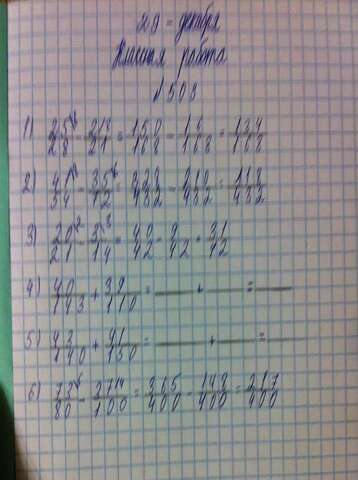 29 - декабря
Классная работа
№ 503
1) 25/28 - 2/21 = 150/168 - 16/168 = 134/168
2) 41/54 - 35/72 = 328/432 - 210/432 = 118/432
3) 20/21 - 3/14 = 40/42 - 9/42 = 31/42
4) 40/143 + 39/110 = — + — = —
5) 43/140 + 91/150 = — + — = —
6) 73/80 - 37/100 = 365/400 - 148/400 = 217/400